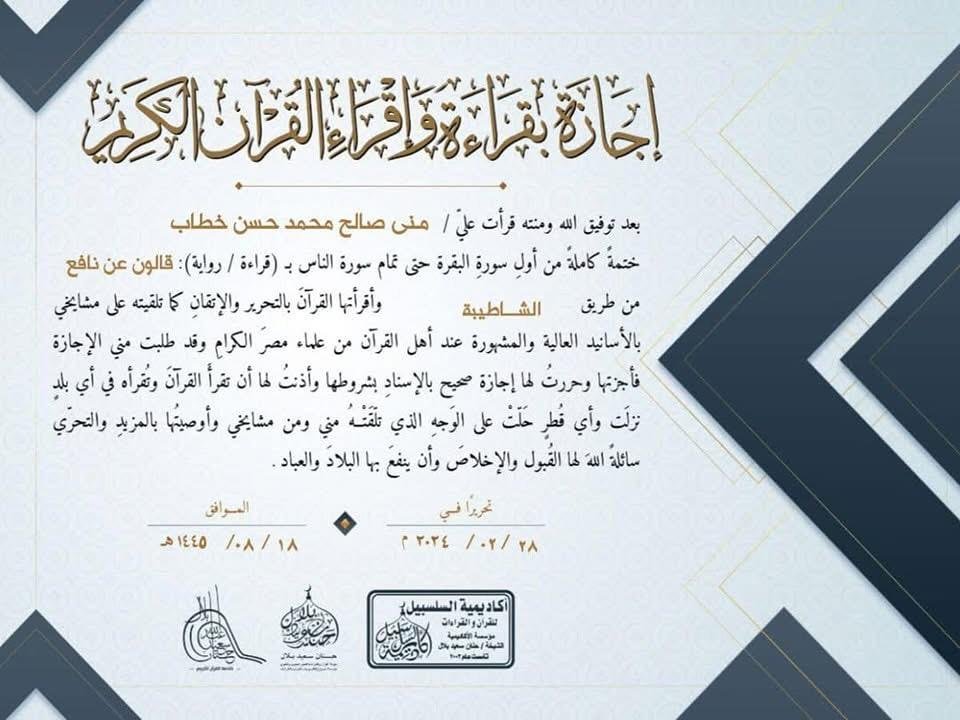 إجازة بقراءة وإقراء القرآن الكريم
بعد توفيق الله ومنته قرأت عليّ / منى صالح محمد حسن خطاب
ختمةً كاملةً من أولِ سورةِ البقرة حتى تمام سورة الناس بـ (قراءة / رواية): قالون عن نافع
من طريق الشاطبية وأقرأتها القرآنَ بالتحرير والإتقانِ كما تلقيته على مشايخي
بالأسانيد العالية والمشهورة عند أهل القرآن من علماء مصرَ الكرامِ وقد طلبت مني الإجازة
فأجزتها وحررتُ لها إجازة صحيح بالإسنادِ بشروطها وأذنتُ لها أن تقرأَ القرآنَ وتُقرأه في أي بلدٍ
نزلَت وأي قُطرٍ حَلّتْ على الوَجهِ الذي تلّقَتْـهُ مني ومن مشايخي وأوصيتُها بالمزيدِ والتحرّي
سائلةً اللهَ لها القُبول والإخلاصَ وأن ينفعَ بها البلادَ والعباد .
تحريرًا فـي
الموافق
٢٨ / ٠٢ / ٢٠٢٤ م
١٨ / ٠٨ / ١٤٤٥ هـ
أكاديمية السلسبيل
للقرآن والقراءات
مؤسسة الأكاديمية
الشيخة / حنان سعيد بلال
تأسست عام ٢٠٠٣
حنان سعيد بلال